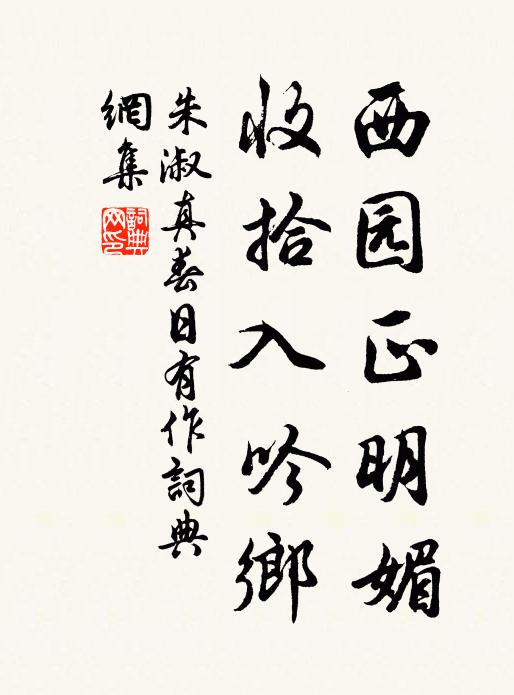 西园正明媚
收拾入吟鄉
朱淑真春日有作詞典
網集
詞典
网印